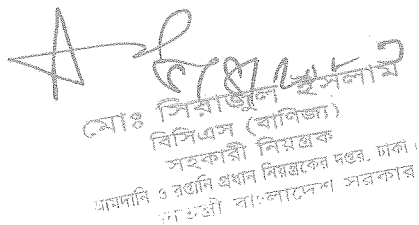 মোঃ সিরাজুল ইসলাম
বিসিএস (বানিজ্য)
সহকারী নিয়ন্ত্রক
আমদানি ও রপ্তানি প্রধান নিয়ন্ত্রকের দপ্তর, ঢাকা।
বাংলাদেশ সরকার